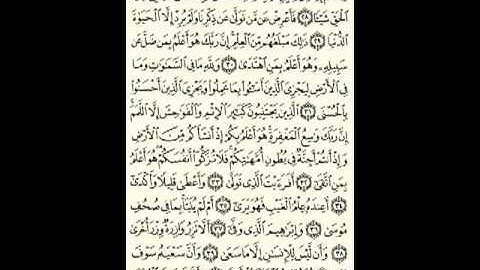 ٱلْحَقِّ شَيْـًٔا ٢٨ فَأَعْرِضْ عَن مَّن تَوَلَّىٰ عَن ذِكْرِنَا وَلَمْ يُرِدْ إِلَّا ٱلْحَيَوٰةَ
ٱلدُّنْيَا ٢٩ ذَٰلِكَ مَبْلَغُهُم مِّنَ ٱلْعِلْمِ إِنَّ رَبَّكَ هُوَ أَعْلَمُ بِمَن ضَلَّ عَن
سَبِيلِهِۦ وَهُوَ أَعْلَمُ بِمَنِ ٱهْتَدَىٰ ٣٠ وَلِلَّهِ مَا فِى ٱلسَّمَٰوَٰتِ وَمَا
فِى ٱلْأَرْضِ لِيَجْزِىَ ٱلَّذِينَ أَسَٰٓـُٔوا۟ بِمَا عَمِلُوا۟ وَيَجْزِىَ ٱلَّذِينَ أَحْسَنُوا۟
بِٱلْحُسْنَى ٣١ ٱلَّذِينَ يَجْتَنِبُونَ كَبَٰٓئِرَ ٱلْإِثْمِ وَٱلْفَوَٰحِشَ إِلَّا ٱللَّمَمَ
إِنَّ رَبَّكَ وَٰسِعُ ٱلْمَغْفِرَةِ هُوَ أَعْلَمُ بِكُمْ إِذْ أَنشَأَكُم مِّنَ ٱلْأَرْضِ
وَإِذْ أَنتُمْ أَجِنَّةٌ فِى بُطُونِ أُمَّهَٰتِكُمْ فَلَا تُزَكُّوٓا۟ أَنفُسَكُمْ هُوَ أَعْلَمُ
بِمَنِ ٱتَّقَىٰٓ ٣٢ أَفَرَءَيْتَ ٱلَّذِى تَوَلَّىٰ ٣٣ وَأَعْطَىٰ قَلِيلًا وَأَكْدَىٰٓ
٣٤ أَعِندَهُۥ عِلْمُ ٱلْغَيْبِ فَهُوَ يَرَىٰٓ ٣٥ أَمْ لَمْ يُنَبَّأْ بِمَا فِى صُحُفِ
مُوسَىٰ ٣٦ وَإِبْرَٰهِيمَ ٱلَّذِى وَفَّىٰٓ ٣٧ أَلَّا تَزِرُ وَازِرَةٌ وِزْرَ أُخْرَىٰ
٣٨ وَأَن لَّيْسَ لِلْإِنسَٰنِ إِلَّا مَا سَعَىٰ ٣٩ وَأَنَّ سَعْيَهُۥ سَوْفَ